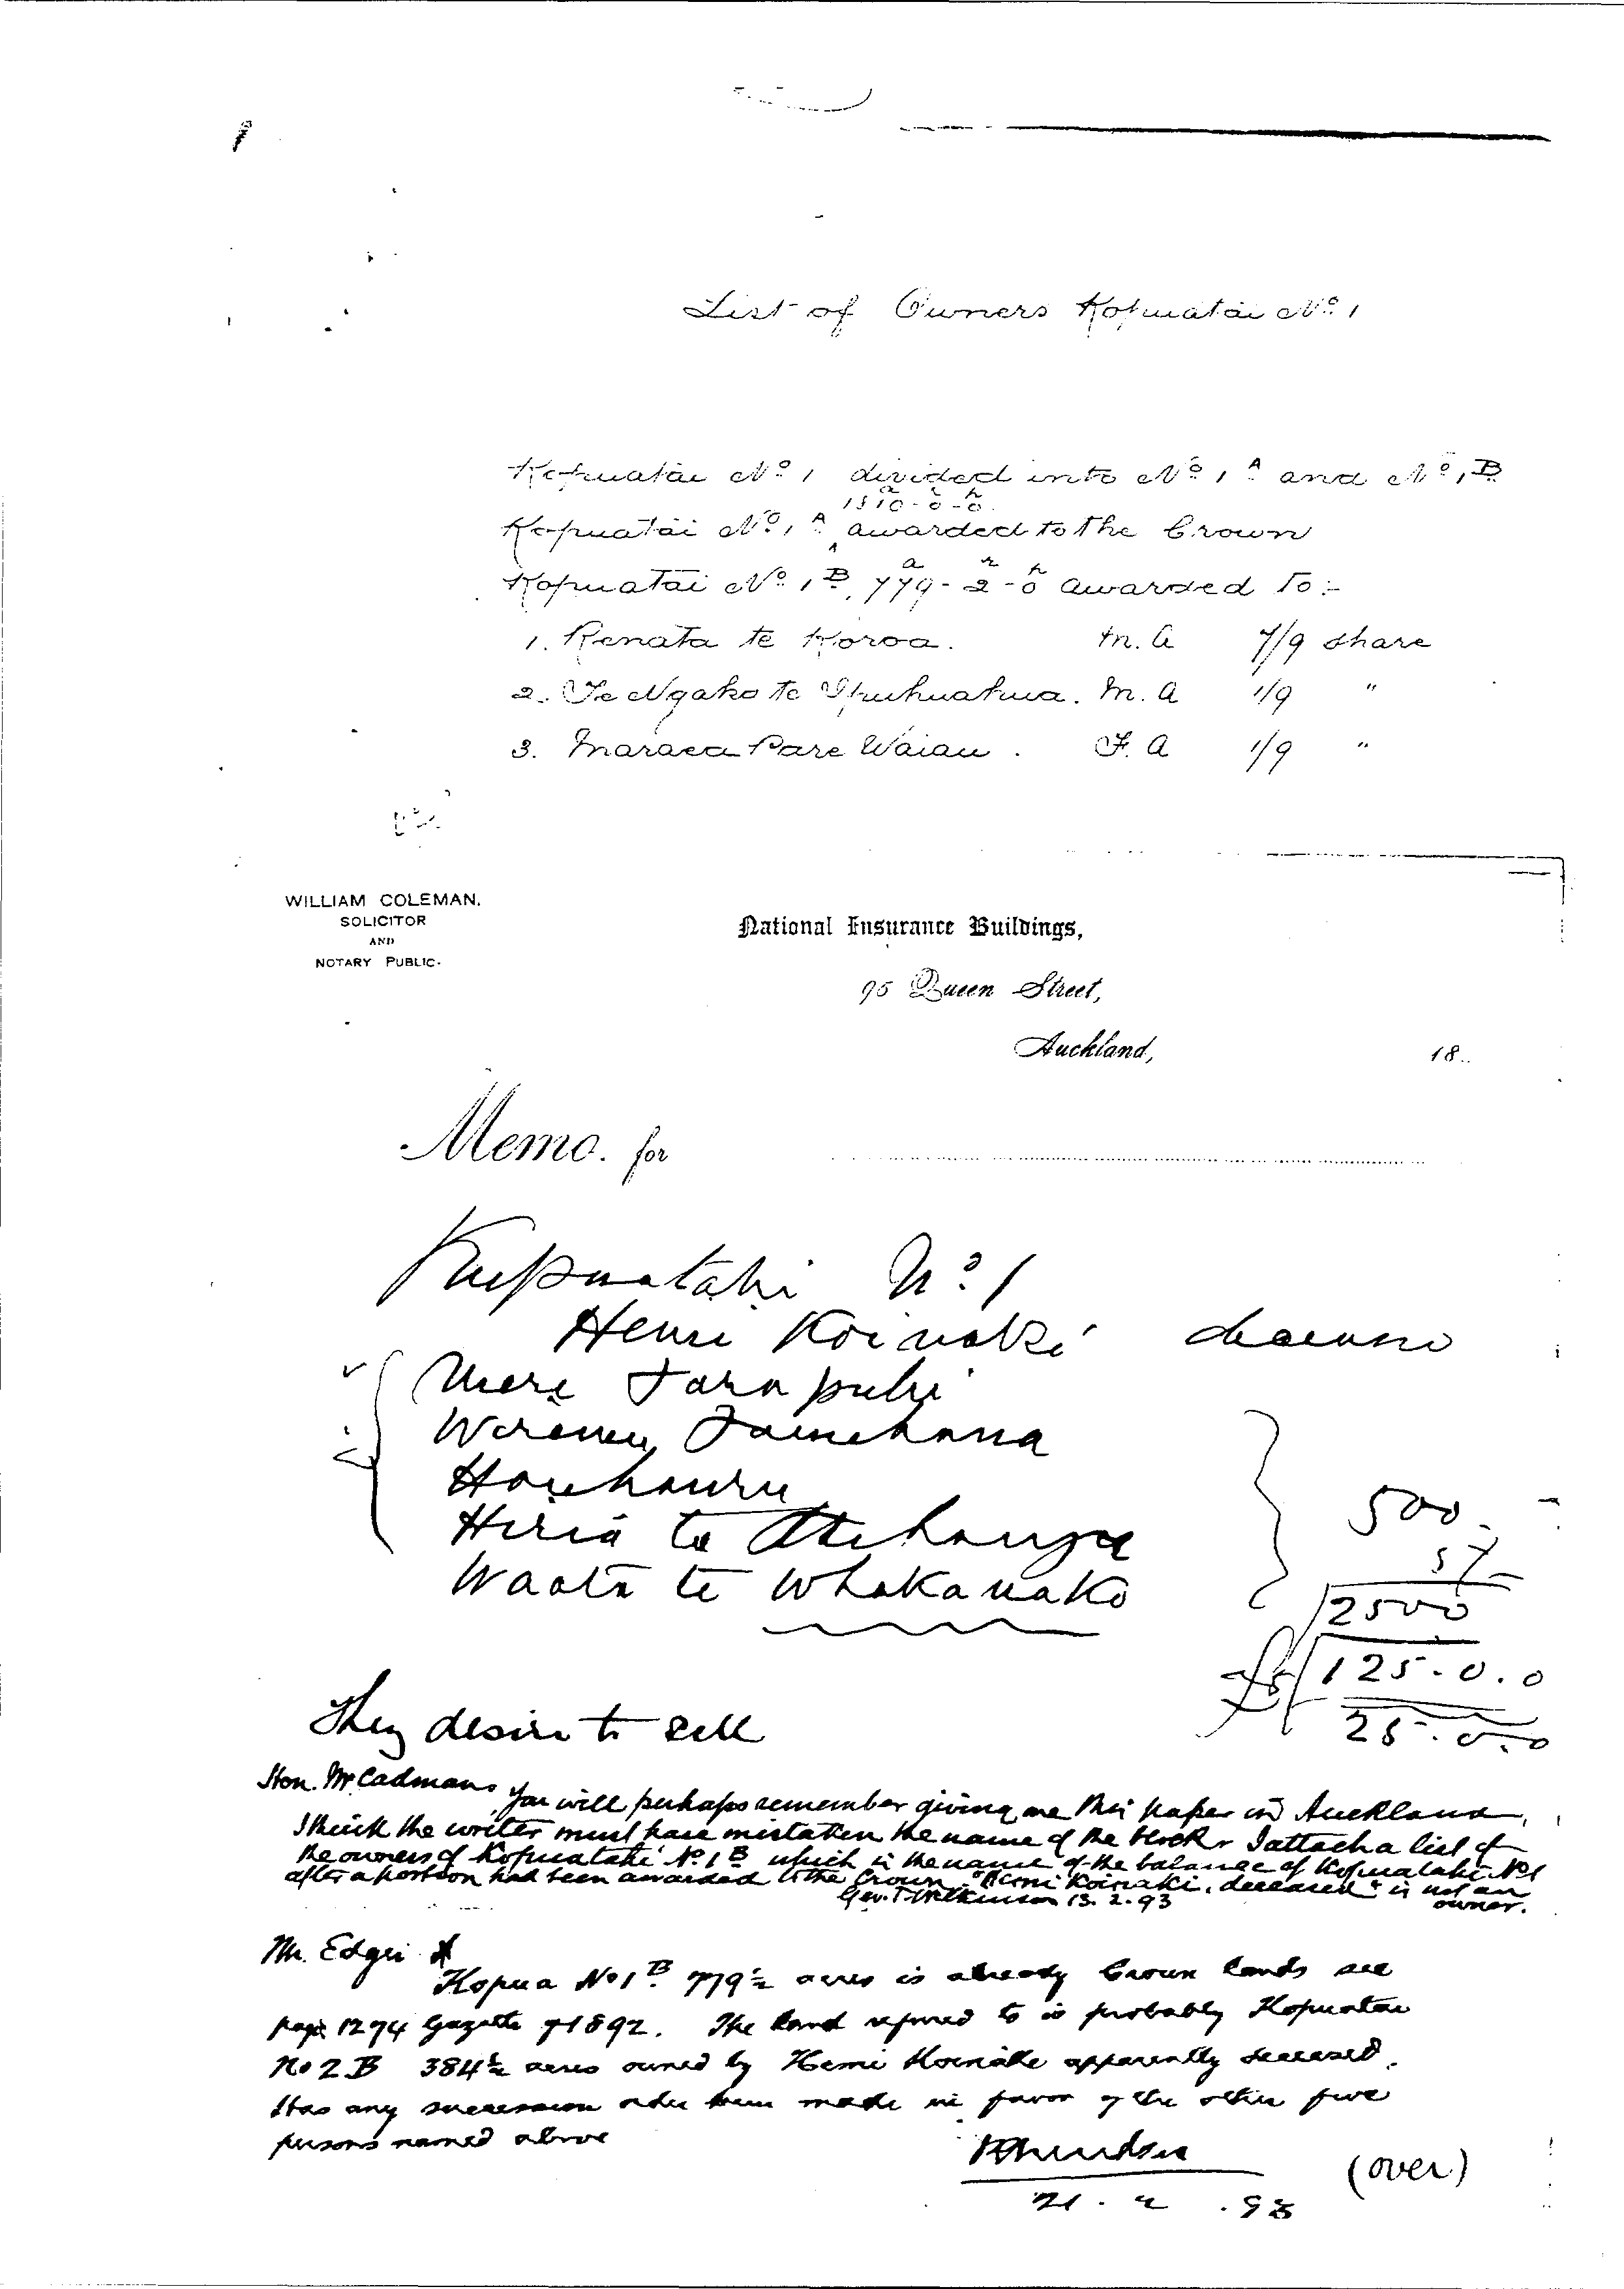 List of Owners Kopuatai No. 1
Kopuatai No. 1 divided into No. 1A and No. 1B
a r p
1510-0-0
Kopuatai No. 1A awarded to the Crown
a r p
Kopuatai No. 1B, 779-2-0 awarded to:-
1. Renata te Koroa. M. A 7/9 share
2. Te Ngako te M. A 1/9 "
3. Maraea Pare Waiau. F. A 1/9 "
WILLIAM COLEMAN,
SOLICITOR
AND
NOTARY PUBLIC.
National Insurance Buildings,
95 Queen Street,
Auckland, 18..
Memo. for
Kupuatahi No. 1
Hemi Koinaki
Mere Tarapuhi
Wiremu Tamehana
Houhouru
Hiria te
Waata te Whakanako
500
5/-
2500
£125.0.0
25.0.0
They desire to sell
Hon. Mr Cadman
You will perhaps remember giving me this paper in Auckland,
I think the writer must have mistaken the name of the block. I attach a list of
the owners of Kopuatahi No. 1B which is the name of the balance of Kopuatahi No 1
after a portion had been awarded to the Crown. "Hemi Koinaki, deceased" is not an
owner.
Geo. T. Wilkinson 13.2.93
Mr. Edger
Kopua No 1B 779½ acres is already Crown lands see
page 1294 Gazette of 1892. The land referred to is probably Kopuatai
No 2B 384½ acres owned by Hemi Koinake apparently deceased.
Has any succession order been made in favor of the other five
persons named above
21. .93
(over)